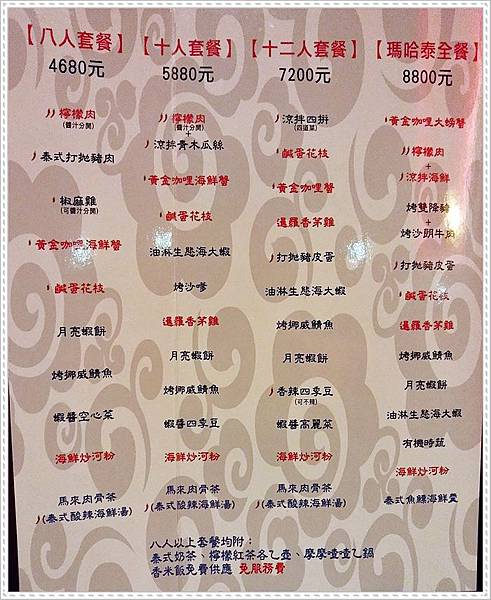 【八人套餐】
4680元
檸檬肉
(醬汁分開)
泰式打拋豬肉
椒麻雞
(可醬汁分開)
黃金咖哩海鮮蟹
鹹蛋花枝
月亮蝦餅
烤挪威鯖魚
蝦醬空心菜
海鮮炒河粉
馬來肉骨茶
(泰式酸辣海鮮湯)
【十人套餐】
5880元
檸檬肉
(醬汁分開)
+
涼拌青木瓜絲
黃金咖哩海鮮蟹
鹹蛋花枝
油淋生態海大蝦
烤沙嗲
暹羅香茅雞
月亮蝦餅
烤挪威鯖魚
蝦醬四季豆
海鮮炒河粉
馬來肉骨茶
(泰式酸辣海鮮湯)
【十二人套餐】
7200元
涼拌四拼
(四道菜)
鹹蛋花枝
黃金咖哩海鮮蟹
暹羅香茅雞
打拋豬皮蛋
油淋生態海大蝦
烤挪威鯖魚
月亮蝦餅
香辣四季豆
(可不辣)
蝦醬高麗菜
海鮮炒河粉
馬來肉骨茶
(泰式酸辣海鮮湯)
【瑪哈泰全餐】
8800元
黃金咖哩大螃蟹
檸檬肉
+
涼拌海鮮
烤雙降豬
+
烤沙朗牛肉
打拋豬皮蛋
鹹蛋花枝
暹羅香茅雞
烤挪威鯖魚
月亮蝦餅
油淋生態海大蝦
有機時蔬
海鮮炒河粉
泰式魚鰾海鮮羹
八人以上套餐均附：
泰式奶茶、檸檬紅茶各乙壺、摩摩喳喳乙鍋
香米飯免費供應 免服務費